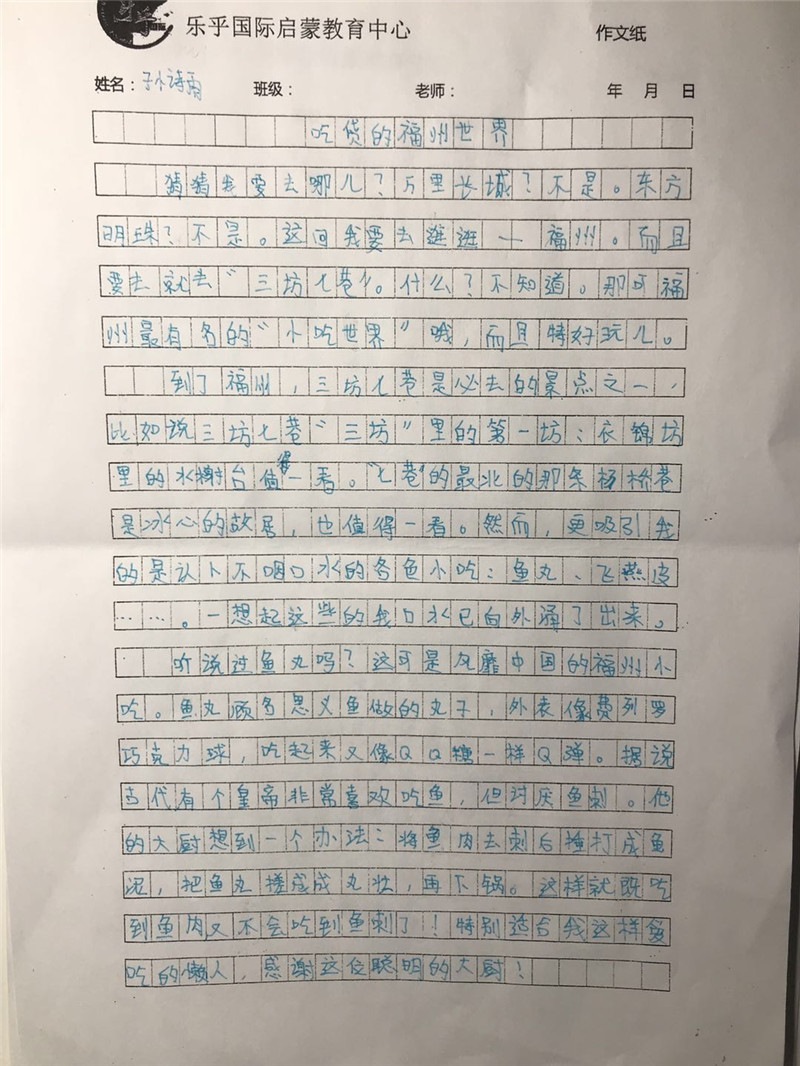 乐乎国际启蒙教育中心 作文纸
姓名：孙诗雨 班级： 老师： 年 月 日
吃货的福州世界
猜猜我要去哪儿？万里长城？不是。东方
明珠？不是。这回我要去逛逛一福州。而且
要去就去“三坊七巷”。什么？不知道。那可福
州最有名的“小吃世界”哦，而且特好玩儿。
到了福州，三坊七巷是必去的景点之一，
比如说三坊七巷“三坊”里的第一坊：衣锦坊
里的水榭台值得一看。“七巷”的最北的那条杨桥巷
是冰心的故居，也值得一看。然而，更吸引我
的是让卜不咽口水的各色小吃：鱼丸、飞燕皮
……。一想起这些的我口水已向外涌了出来。
听说过鱼丸吗？这可是风靡中国的福州小
吃。鱼丸顾名思义鱼做的丸子，外表像费列罗
巧克力球，吃起来又像QQ糖一样Q弹。据说
古代有个皇帝非常喜欢吃鱼，但讨厌鱼刺。他
的大厨想到一个办法：将鱼肉去刺后捶打成鱼
泥，把鱼丸搓成成丸状，再下锅。这样就既吃
到鱼肉又不会吃到鱼刺了！特别适合我这样爱
吃的懒人，感谢这位聪明的大厨！